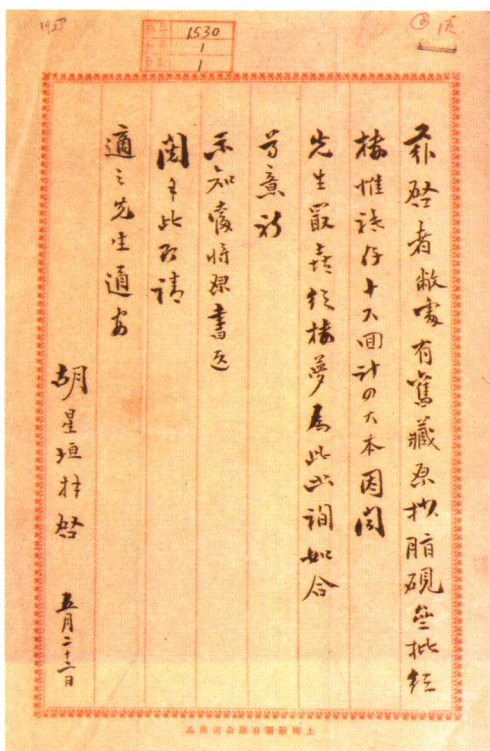 1530
1
1
茲啓者敝處有舊藏原抄脂硯齋批紅
樓惟祗存十六囬計四大本因聞
先生最喜紅樓夢為此函詢如合
尊意祈
示知當將原書送
閱手此即請
適之先生道安
胡星垣拜啓 五月二十二日
上海新新有限公司出品